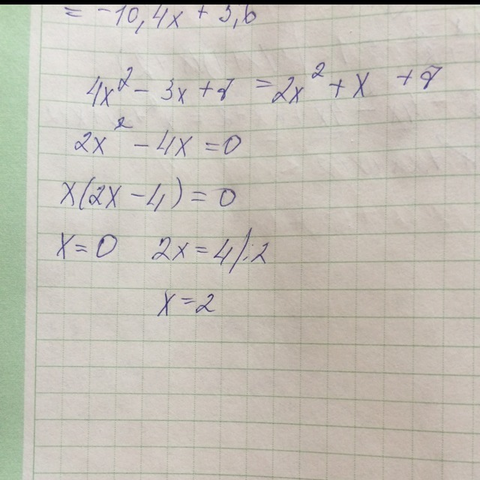 = -10,4x + 3,6
4x² - 3x + 8 = 2x² + x + 8
2x² - 4x = 0
x(2x - 4) = 0
x = 0 2x = 4 /:2
x = 2